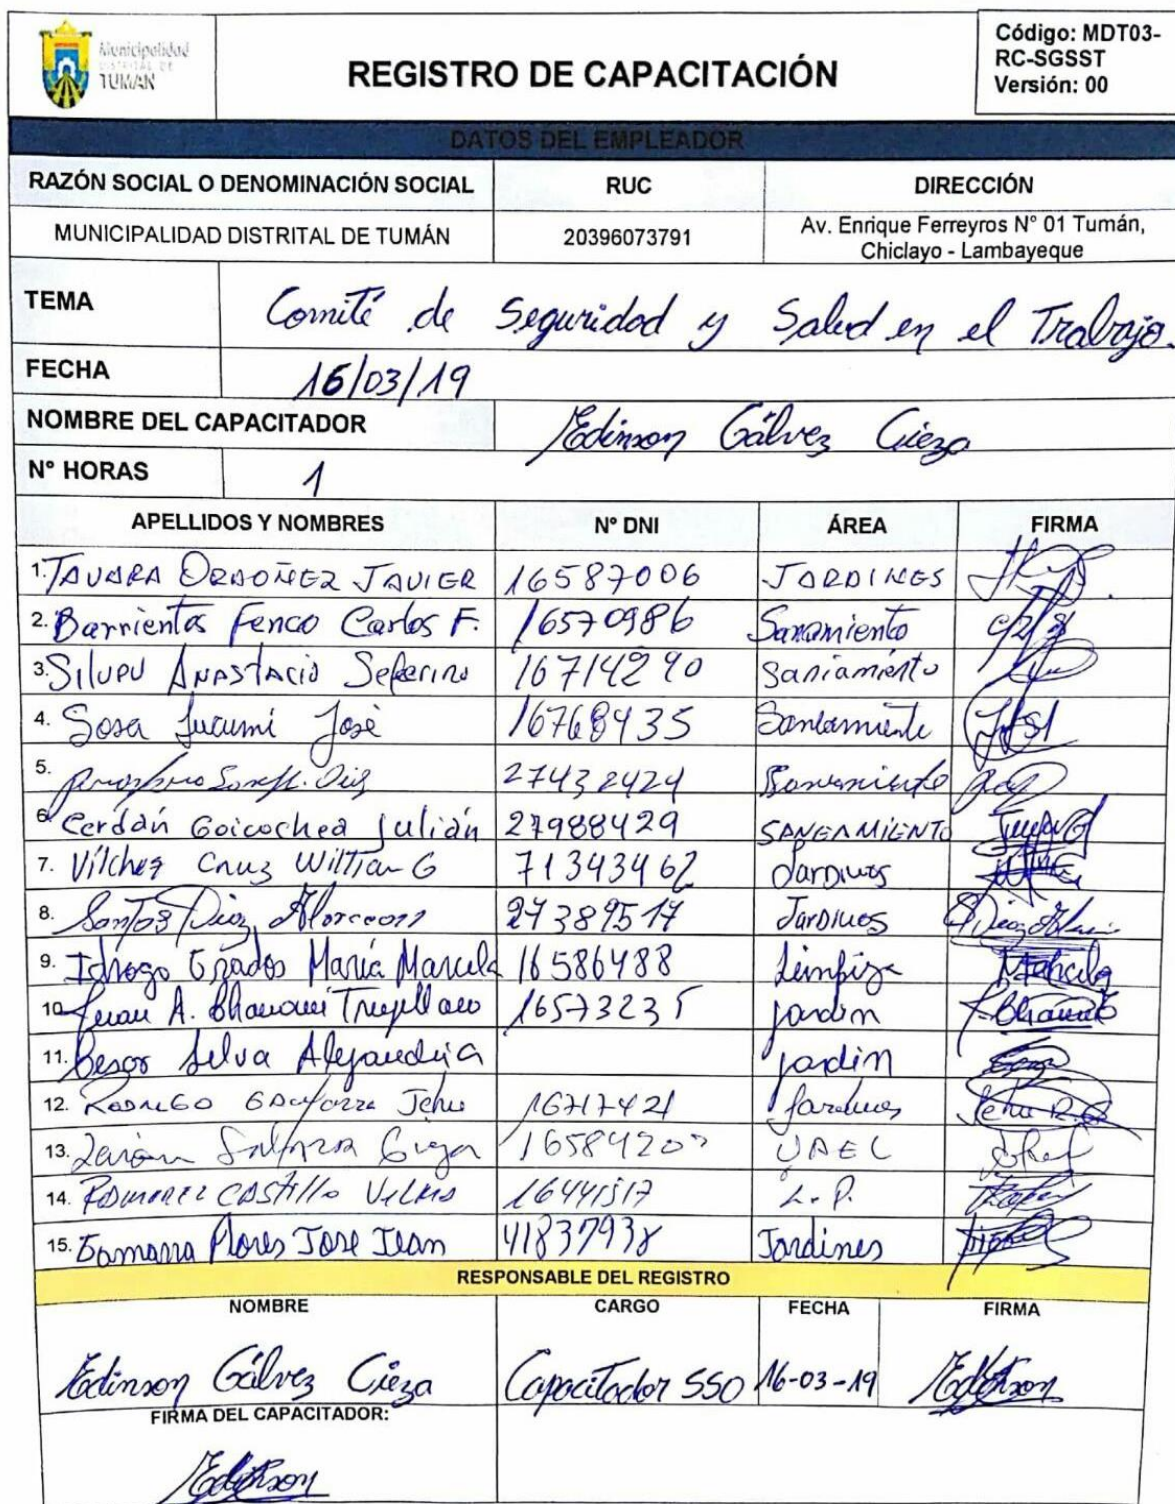 Municipalidad
DISTRITAL DE
TUMAN
REGISTRO DE CAPACITACIÓN
Código: MDT03-
RC-SGSST
Versión: 00
DATOS DEL EMPLEADOR
RAZÓN SOCIAL O DENOMINACIÓN SOCIAL RUC DIRECCIÓN
MUNICIPALIDAD DISTRITAL DE TUMÁN 20396073791 Av. Enrique Ferreyros N° 01 Tumán,
Chiclayo - Lambayeque
TEMA Comité de Seguridad y Salud en el Trabajo.
FECHA 16/03/19
NOMBRE DEL CAPACITADOR Edinson Gálvez Cieza
N° HORAS 1
APELLIDOS Y NOMBRES N° DNI ÁREA FIRMA
1. TAVARA ORDOÑEZ JAVIER 16587006 JARDINES
2. Barrientos Fenco Carlos F. 16570986 Sanamiento
3. Silupu Anastacio Seferino 16714290 Saniamiento
4. Sosa Jucumi José 16768435
5. 27432424
6. Cerdán Goicochea Julián 27988429 SANEAMIENTO
7. Vilchez Cruz Willian G 71343462 Jardines
8. Santos Diaz 27389517 Jardines
9. Idrogo Grados María Marcela 16586488 Limpiza Marcela
10. Juan A. 16573235 jardin
11. Silva Alejandria jardin
12. Jehu 16717421 Jardines Jehu R.G
13. UAEL
14. CASTILLO L.P.
15. Gamarra Flores Jose Jean 41837938 Jardines
RESPONSABLE DEL REGISTRO
NOMBRE CARGO FECHA FIRMA
Edinson Gálvez Cieza Capacitador SSO 16-03-19 Edinson
FIRMA DEL CAPACITADOR:
Edinson